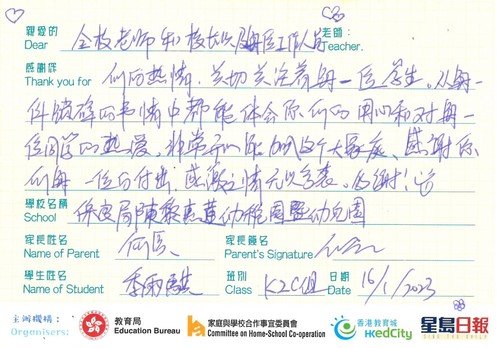 親愛的 全校老師和校長以及每位工作人員 老師：
Dear Teacher,
感謝你 們的熱情、关切关注着每一位学生。从每一
Thank you for
件琐碎的事情中都能体会你们的用心和对每一
位同学的熱爱。非常开心能加入这个大家庭、感謝你
们每一位的付出，感激之情无以言表。
學校名稱 保良局陳黎惠蓮幼稚園暨幼兒園
School
家長姓名 家長簽名
Name of Parent Parent's Signature
學生姓名 班別 K2C組 日期 16/1/2023
Name of Student Class Date
主辦機構：
Organisers:
教育局
Education Bureau
家庭與學校合作事宜委員會
Committee on Home-School Co-operation
香港教育城
HKedCity
星島日報